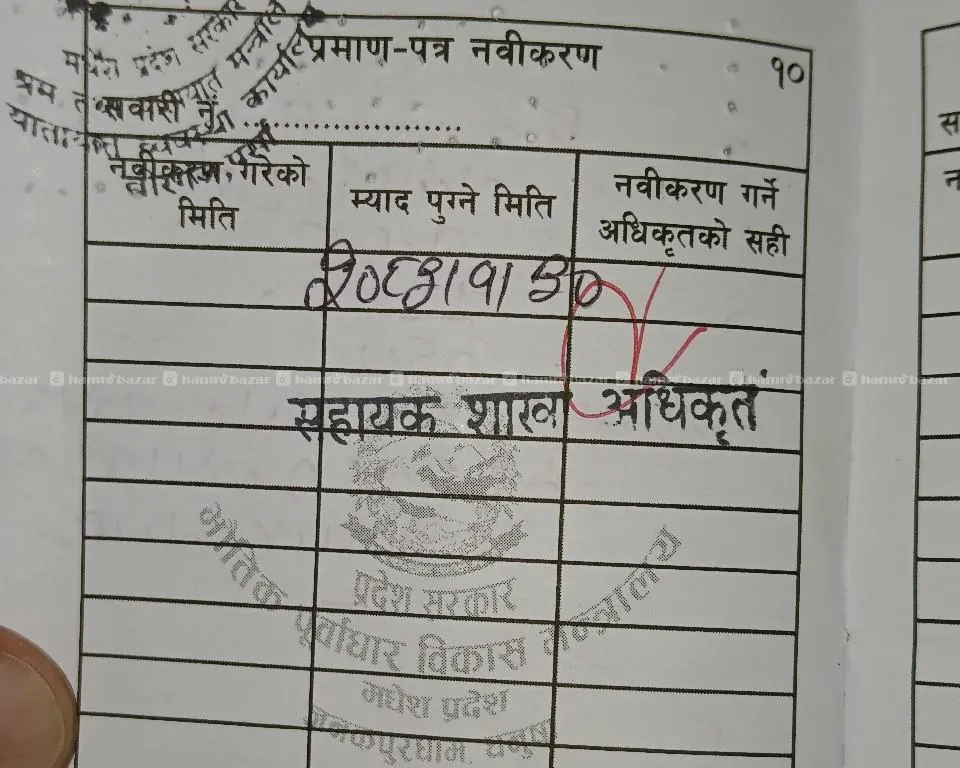 मधेश प्रदेश सरकार
यातायात व्यवस्था कार्यालय
प्रमाण-पत्र नवीकरण
१०
सवारी नं. ........................
नवीकरण गरेको
मिति
म्याद पुग्ने मिति
नवीकरण गर्ने
अधिकृतको सही
२०८३।१।३०
hamrobazar hamrobazar hamrobazar hamrobazar hamrobazar hamrobazar hamrobazar
सहायक शाखा अधिकृत
प्रदेश सरकार
भौतिक पूर्वाधार विकास मन्त्रालय
मधेश प्रदेश
जनकपुरधाम, धनुषा
स
न